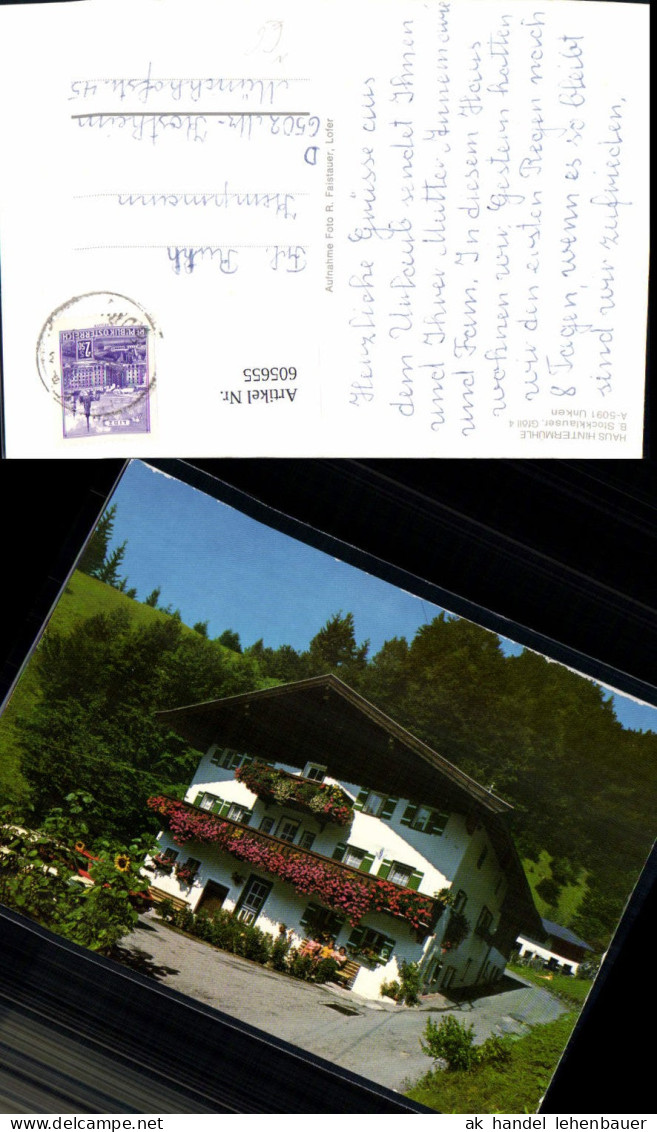 HAUS HINTERMÜHLE
B. Stockklauser, Gföll 4
A-5091 Unken
Herzliche Grüsse aus
dem Urlaub sendet Ihnen
und Ihrer Mutter Annemarie
und Fam. In diesem Haus
wohnen wir. Gestern hatten
wir den ersten Regen nach
8 Tagen, wenn es so bleibt
sind wir zufrieden.
Aufnahme Foto R. Faistauer, Lofer
REPUBLIK ÖSTERREICH
Artikel Nr.
605655
Frl. Ruth
Hempmann
D
6502 Mz-Kostheim
Münchhofstr. 45
ak handel lehenbauer